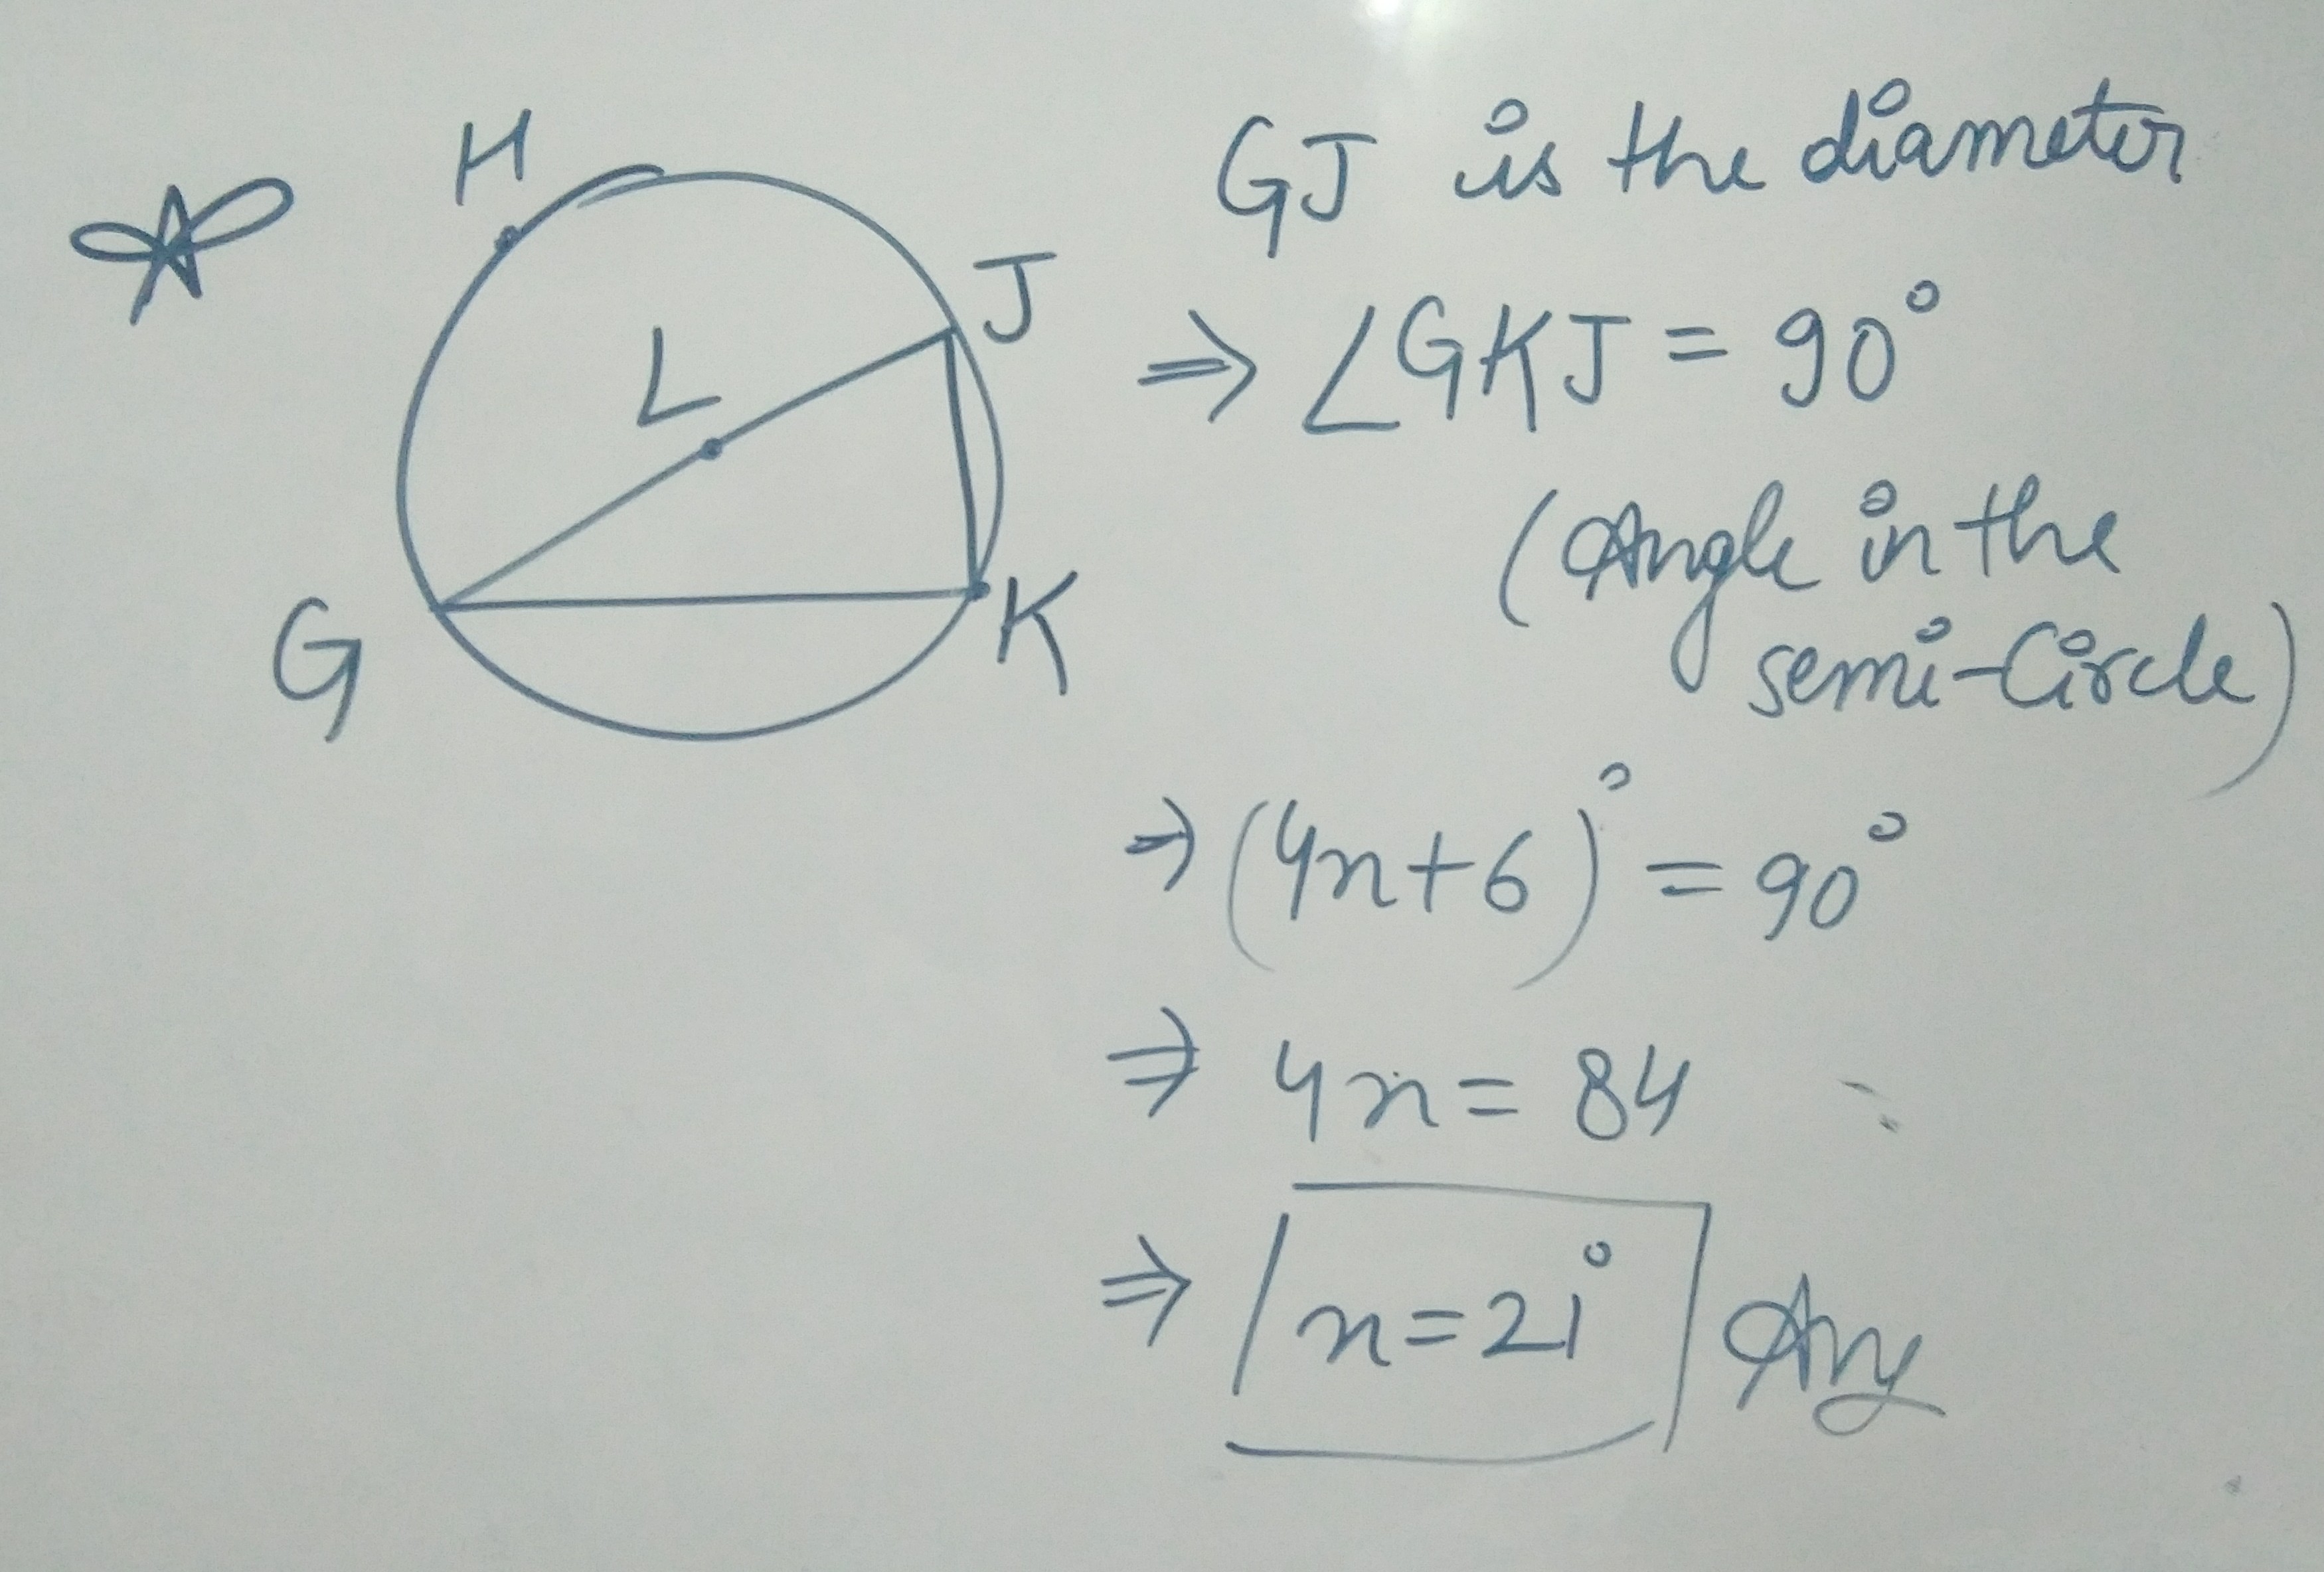 H
J
L
G
K
GJ is the diameter
⇒ ∠GKJ = 90°
(Angle in the
semi-Circle)
⇒ (4n+6)° = 90°
⇒ 4n = 84
⇒ n = 21° Ans